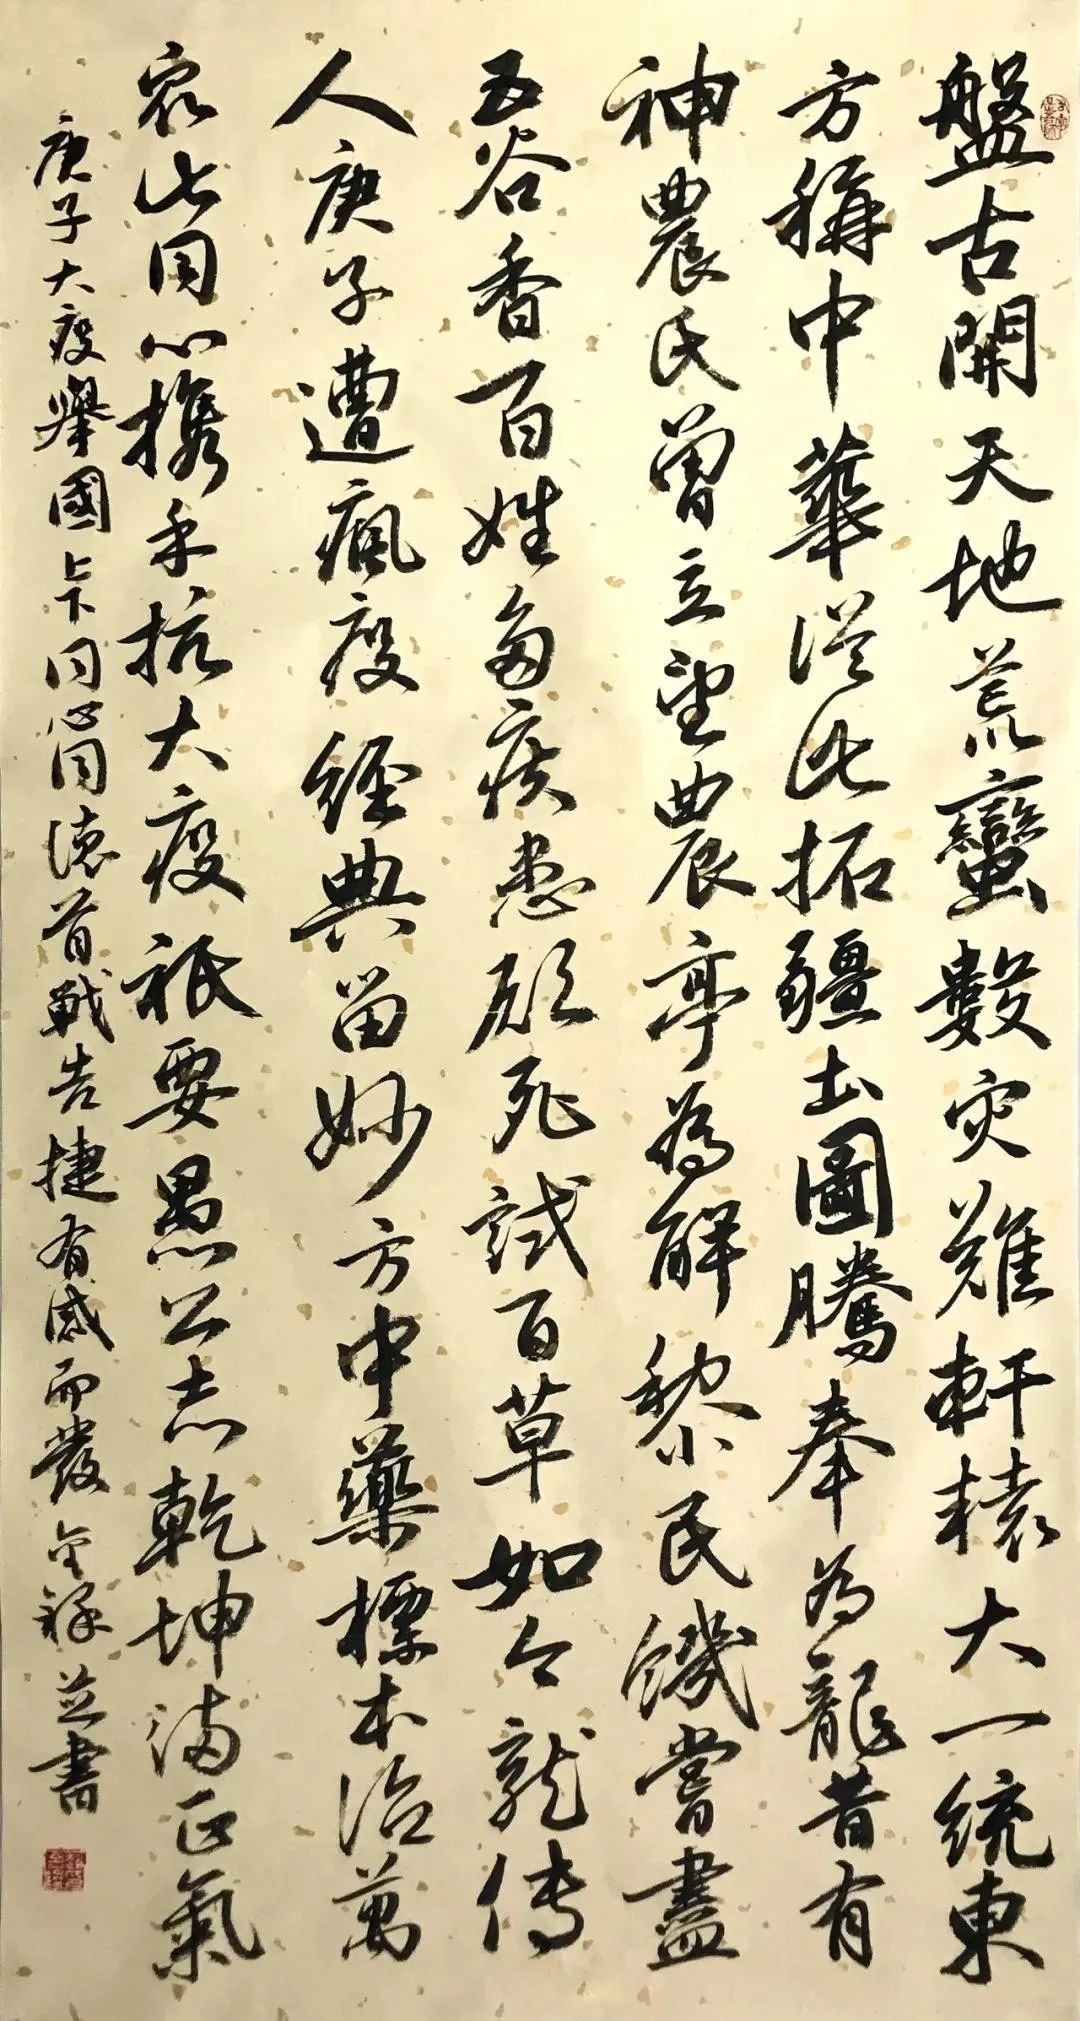 盤古開天地荒蠻數灾難軒轅大一統東
方稱中華從此拓疆土圖騰奉為龍昔有
神農氏曾立望農亭為解黎民饑嘗盡
五谷香百姓多疾患願死試百草如今龍傳
人庚子遭瘋疫經典留妙方中藥標本治萬
衆此同心携手抗大疫衹要愚公志乾坤滿正氣
庚子大疫舉國上下同心同德首戰告捷有感而發金祿並書